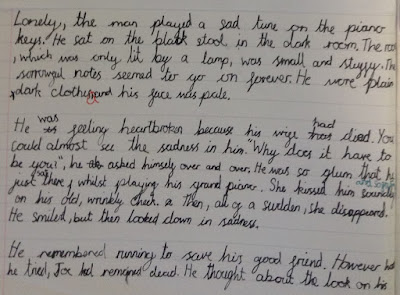 Lonely, the man played a sad tune on the piano
keys. He sat on the black stool in the dark room. The room
, which was only lit by a lamp, was small and stuffy. The
sorrowful notes seemed to go on forever. He wore plain
dark clothes and his face was pale.
He was feeling heartbroken because his wife had died. You
could almost see the sadness in him. "Why does it have to
be you?", he asked himself over and over. He was so glum that he
just sat there, whilst playing his grand piano. She kissed him soundly
on his old, wrinkly cheek. Then, all of a sudden, she disappeared.
He smiled, but then looked down in sadness.
He remembered running to save his good friend. However hard
he tried, Joe had remained dead. He thought about the look on his